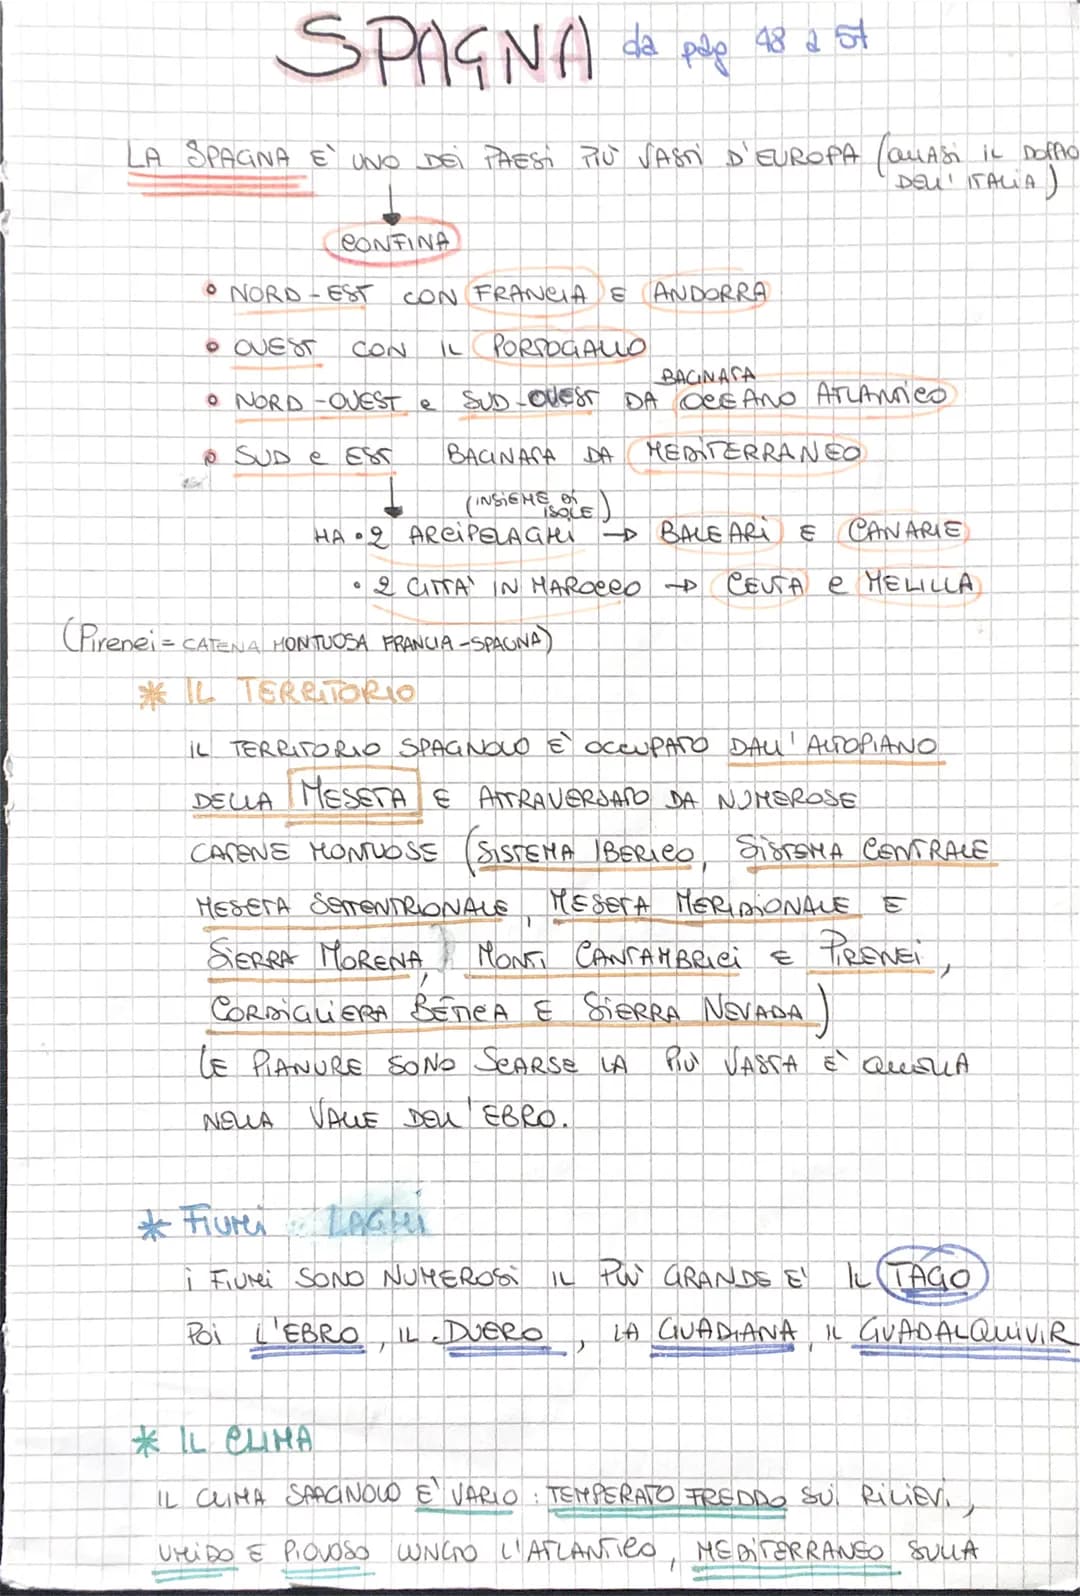 SPAGNA da pag 48 a 57
LA SPAGNA E' UNO DEI PAESI PIÙ VASTI D'EUROPA (QUASI IL DOPPIO
DELL'ITALIA)
CONFINA
• NORD-EST CON FRANCIA E ANDORRA
• OVEST CON IL PORTOGALLO
BAGNATA
• NORD-OVEST e SUD-OVEST DA OCEANO ATLANTICO
• SUD e EST BAGNATA DA MEDITERRANEO
(INSIEME DI
ISOLE)
HA • 2 ARCIPELAGHI → BALEARI E CANARIE
• 2 CITTA' IN MAROCCO → CEUTA e MELILLA
(Pirenei = CATENA MONTUOSA FRANCIA-SPAGNA)
* IL TERRITORIO
IL TERRITORIO SPAGNOLO E' OCCUPATO DALL'ALTOPIANO
DELLA MESETA E ATTRAVERSATO DA NUMEROSE
CATENE MONTUOSE (SISTEMA IBERICO, SISTEMA CENTRALE
MESETA SETTENTRIONALE, MESETA MERIDIONALE E
SIERRA MORENA, MONTI CANTAMBRICI E PIRENEI,
CORDIGLIERA BETICA E SIERRA NEVADA)
LE PIANURE SONO SCARSE LA PIÙ VASTA E' QUELLA
NELLA VALLE DELL'EBRO.
* FIUMI LAGHI
I FIUMI SONO NUMEROSI IL PIU' GRANDE E' IL TAGO
POI L'EBRO, IL DUERO, LA GUADIANA, IL GUADALQUIVIR
* IL CLIMA
IL CLIMA SPAGNOLO E' VARIO: TEMPERATO FREDDO SUI RILIEVI,
UMIDO E PIOVOSO LUNGO L'ATLANTICO, MEDITERRANEO SULLA